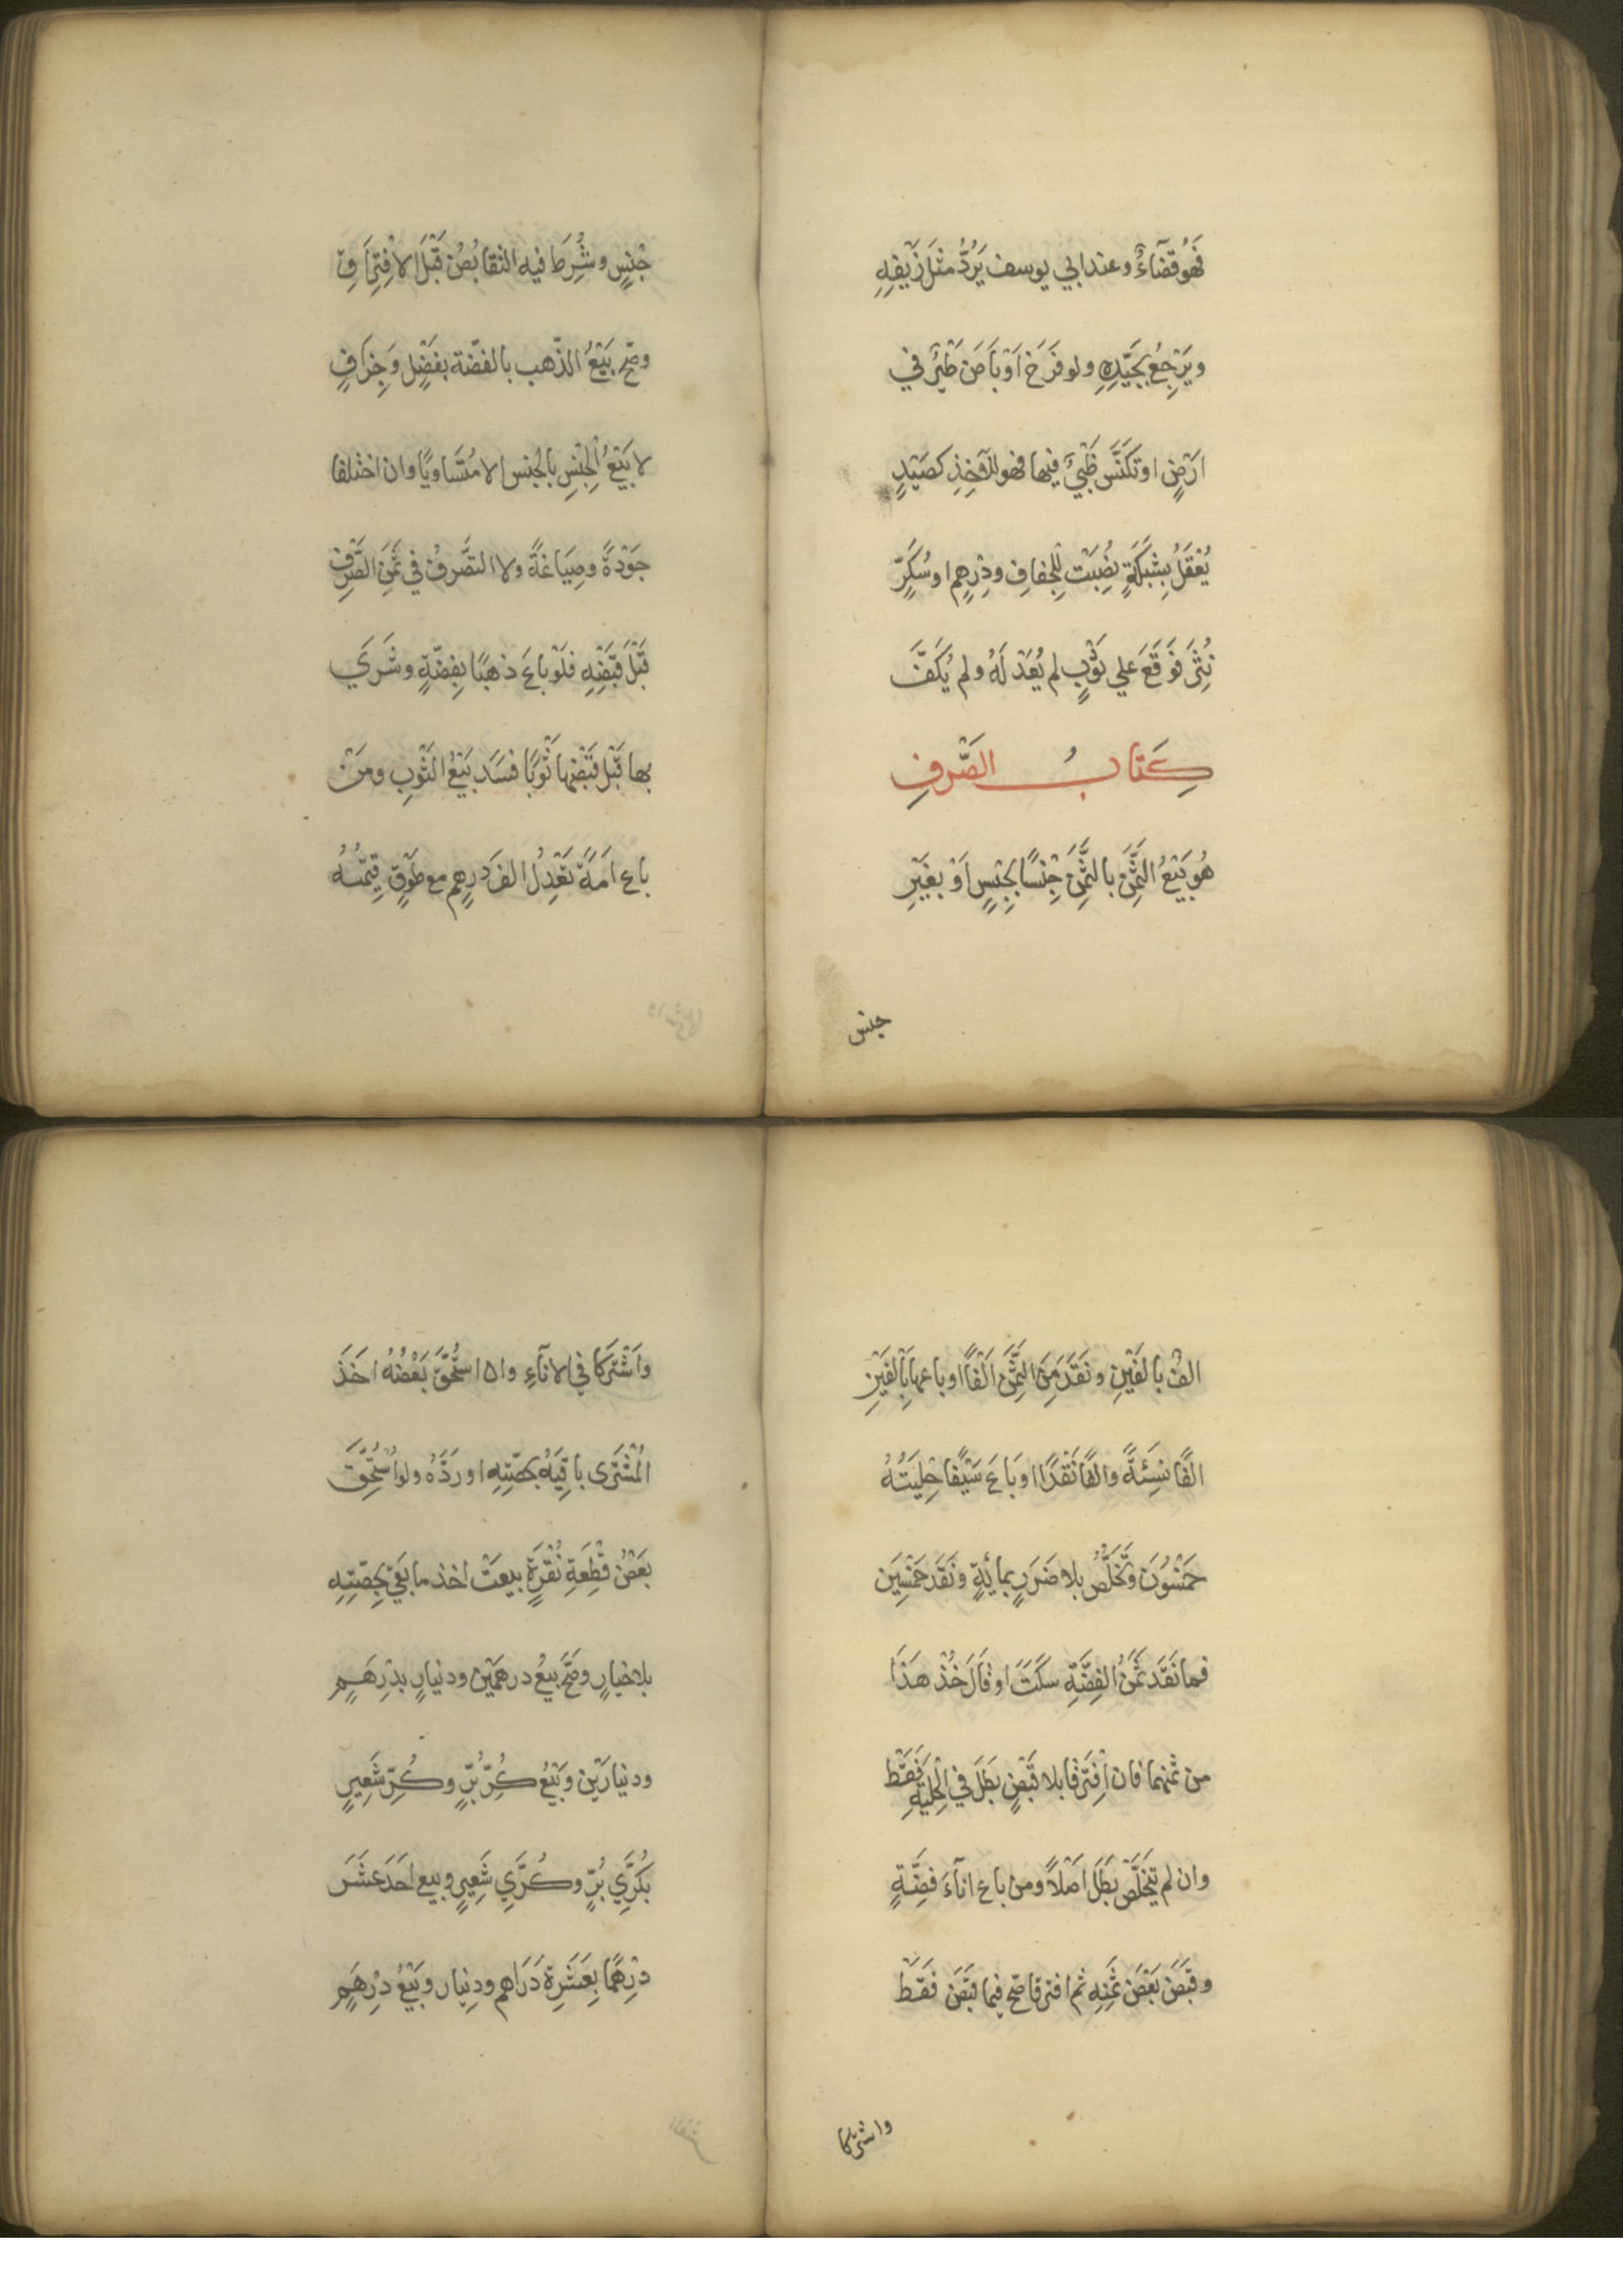 فَهُوَ قَضَآءٌ وعند ابي يوسف يَرُدُّ مثلَ زَيْفِهِ
ويَرْجِعُ بِجَيِّدِهِ ولو فَرَخَ اَوْ بَاضَ طَيْرٌ في
ارْضٍ او تكَنَّسَ ظَبْيٌ فيها فهو للآخِذِ كصَيْدٍ
يُعْقَلُ بِشَبَكَةٍ نُصِبَتْ لِلْجفافِ ودِرْهمٍ او سُكَّرٍ
نُثِرَ فَوَقَعَ علي ثَوْبٍ لم يُعَدْ لَهُ ولم يُكَفَّ
كِتَابُ الصَّرْفِ
هُوَ بَيْعُ الثَّمَنِ بالثَّمَنِ جِنْسًا بِجِنْسٍ اَوْ بغَيْرِ
جنس
جِنْسٍ وشُرِطَ فيه التقابُضُ قَبْلَ الافْتِرَاقِ
وصحّ بَيْعُ الذّهب بالفضّة بفَضْلٍ وَجِزَافٍ
لا بَيْعُ الْجِنْسِ بالجنس الا مُتَسَاويًا وان اختلفا
جَوْدَةً وصِيَاغَةً ولا التصَّرفُ في ثَمَنِ الصَّرْفِ
قَبْلَ قَبْضِهِ فلَوْ باعَ ذهَبًا بِفِضّةٍ وشَرَي
بها قَبْلَ قَبْضِها ثَوْبًا فسَدَ بَيْعُ الثَّوبِ ومَنْ
باع اَمَةً تَعْدِلُ الفَ دِرْهمٍ مع طَوْقٍ قِيْمَتُهُ
الفٌ بالفَيْنِ ونقَدَ مِنَ الثَّمَنِ اَلْفًا او باعها بِاَلْفَيْنِ
الفًا نَسِئَةً والفًا نَقْدًا او بَاعَ سَيْفًا حِلْيَتُهُ
خمْسُوَنَ وَتَخَلُّصُ بلا ضَرَرٍ بمائةٍ ونَقَدَ خمْسِينَ
فما نَقَدَ ثَمَنُ الفِضَّةِ سكَتَ او قَالَ خُذْ هَذَا
من ثمنهما فان افْتَرَقَا بلا قَبْضٍ بَطَلَ في الْحِلْيَةِ فَقَطْ
وان لم تَتَخَلَّصْ بَطَلَ اَصْلاً ومن باع انآءَ فِضَّةٍ
وقبَضَ بَعْضَ ثَمَنِهِ ثم افترقا صحّ فيما قبَضَ فَقَطْ
واشتركا
واَشْتَرَكا في الانآءِ وان استُحِقَّ بَعْضُهُ اخَذَ
الْمُشْتَرِى باقِيَهُ بحصّتِهِ او رَدَّهُ ولو اُسْتُحِقَّ
بعَضُ قِطْعَةِ نُقْرَةٍ بيعَتْ اخذ ما بَقِيَ بحِصّتِهِ
بلا خيارٍ وصَحَّ بيعُ درهمَيْن ودنيارٍ بدِرْهَمٍ
ودنيارَيْن وبَيْعُ كُرِّ بُرٍّ وكُرِّ شَعِيرٍ
بكُرَّي بُرٍّ وكُرَّي شَعِيرٍ وبيع اَحَدَ عَشَرَ
دِرْهمًا بعَشَرةِ دَرَاهم ودِنيار وبَيْعُ دِرْهَمٍ